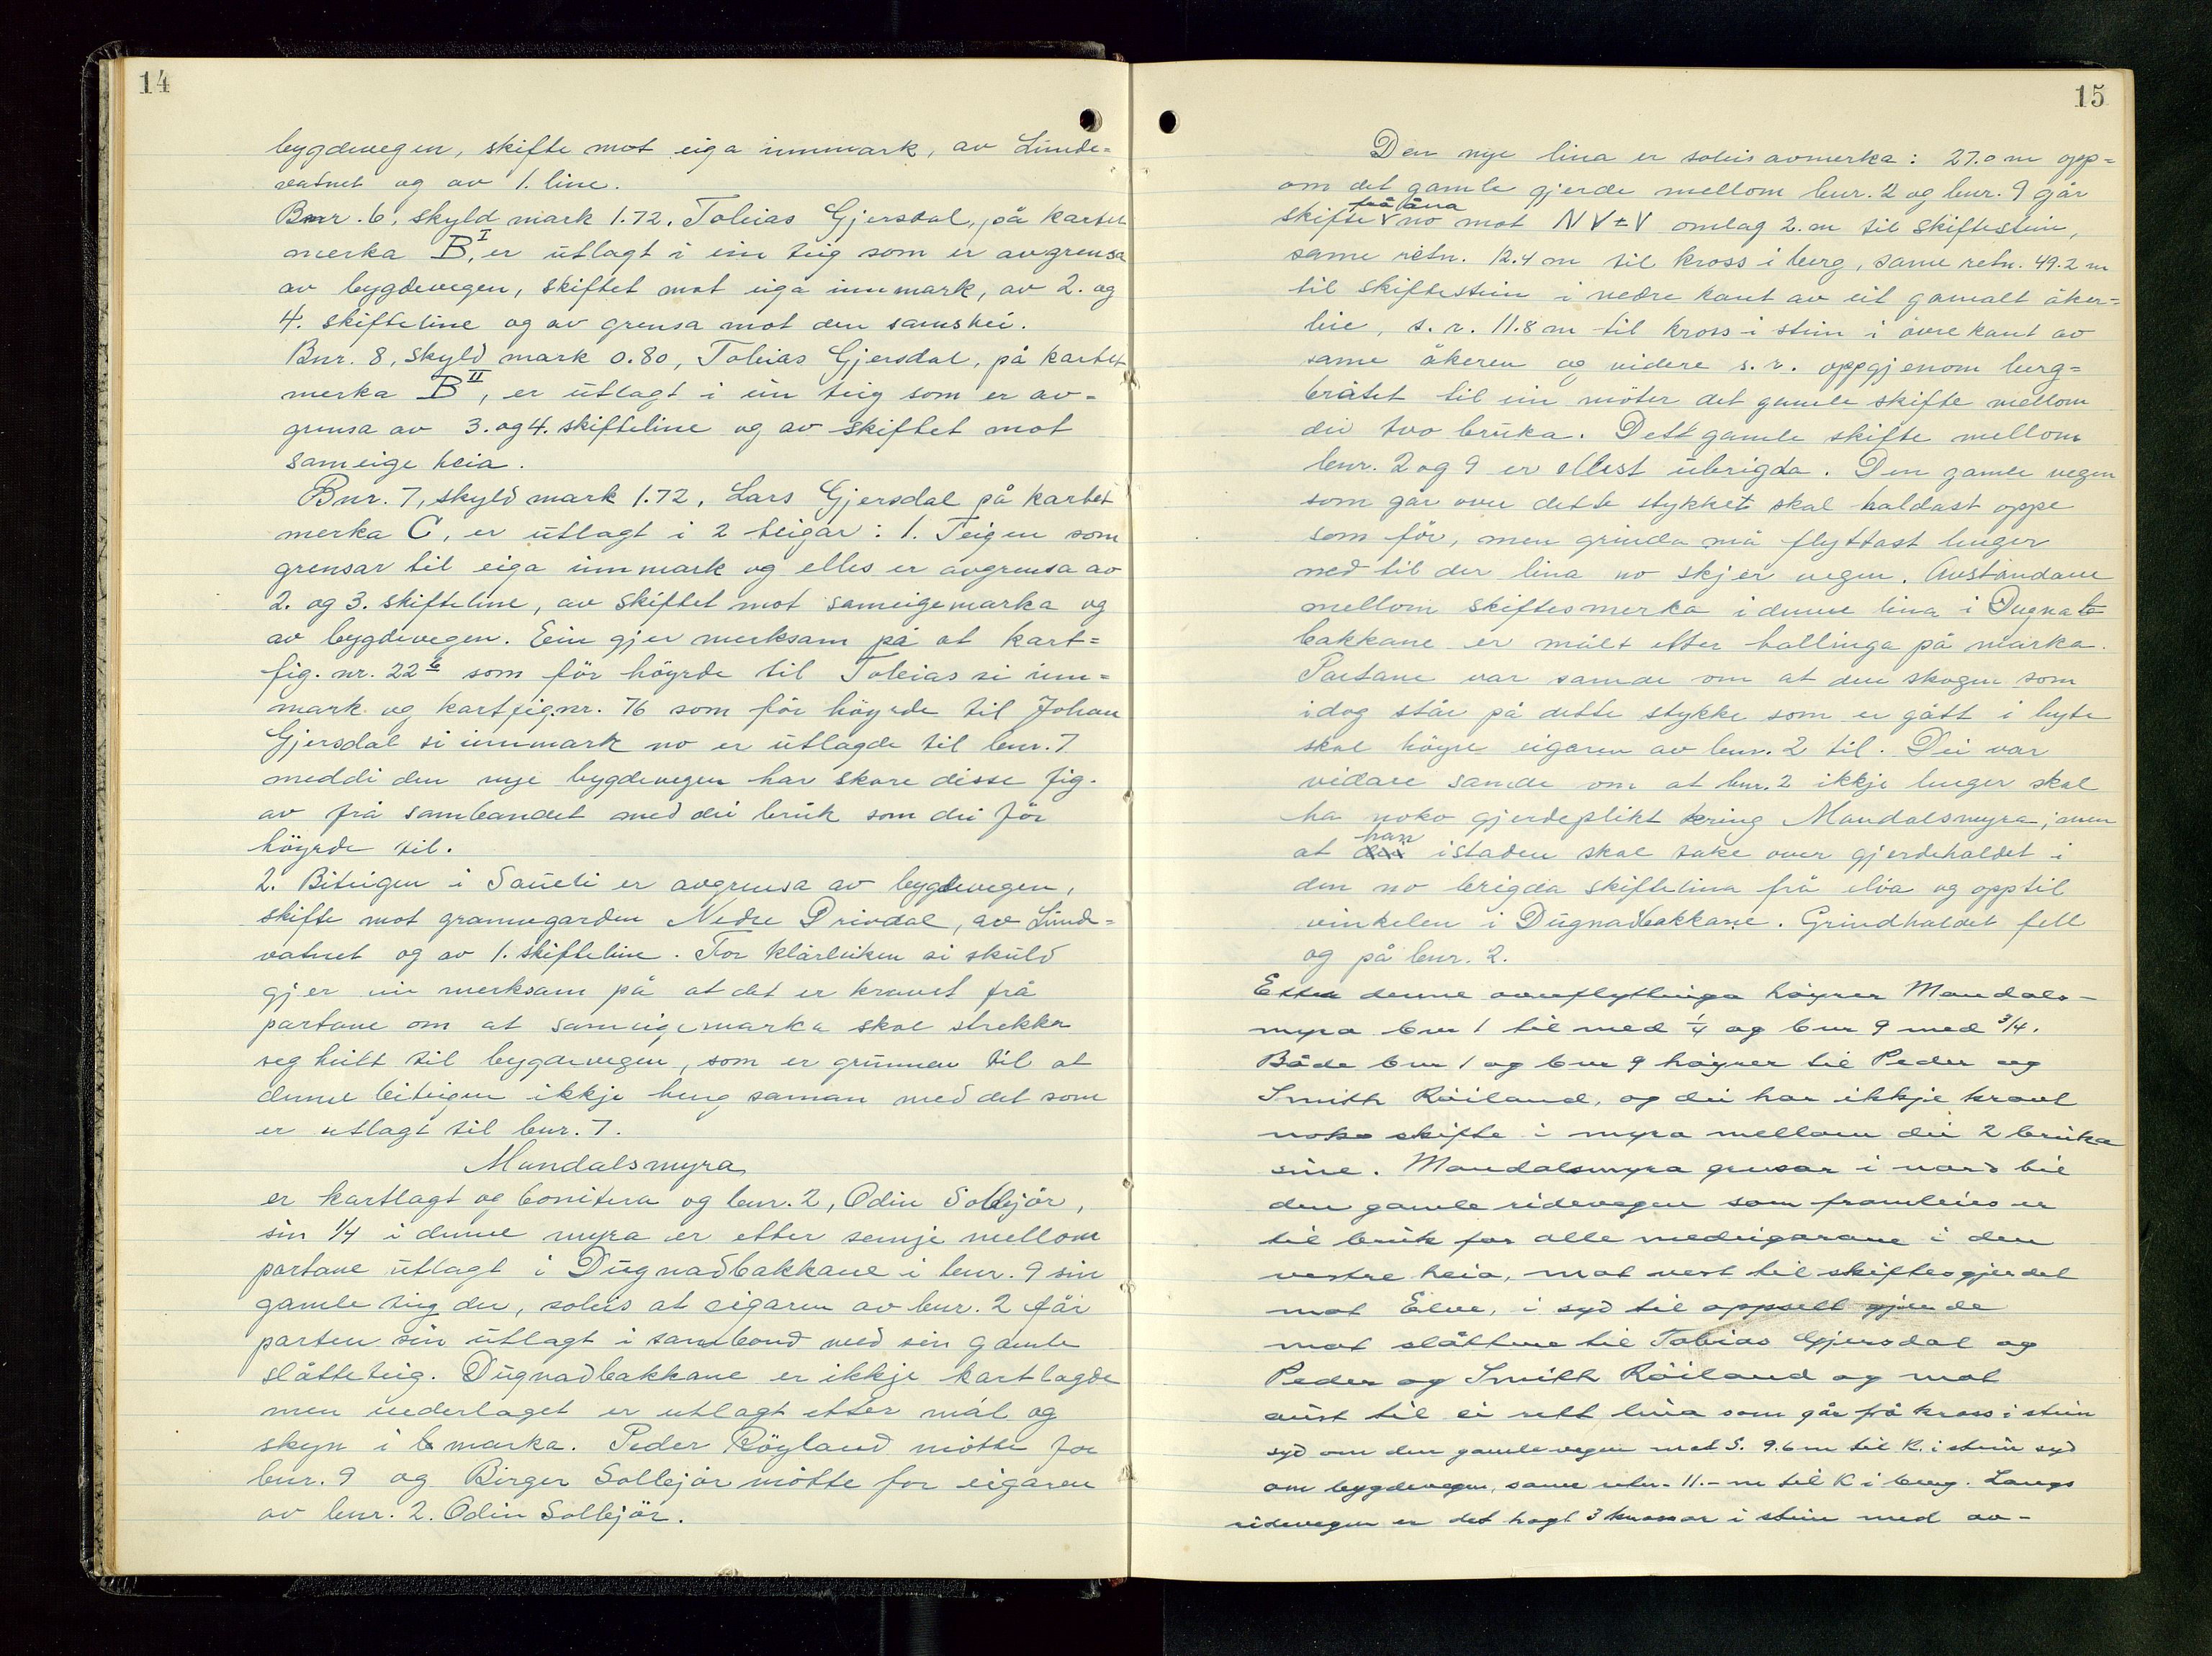 14
bygdevegen, skifte mot eiga innmark, av Lunde-
vatnet og av 1. line.
Bnr. 6, skyld mark 1.72. Tobias Gjersdal, på kartet
merka B I, er utlagt i ein teig som er avgrensa
av bygdevegen, skiftet mot eiga innmark, av 2. og
4. skifteline og av grensa mot den samshei.
Bnr. 8, skyld mark 0.80, Tobias Gjersdal, på kartet
merka B II, er utlagt i ein teig som er av-
grensa av 3. og 4. skifteline og av skiftet mot
sameige heia.
Bnr. 7, skyld mark 1.72, Lars Gjersdal på kartet
merka C, er utlagt i 2 teigar: 1. Teigen som
grensar til eiga innmark og elles er avgrensa av
2. og 3. skifteline, av skiftet mot sameigemarka og
av bygdevegen. Ein gjer merksam på at kart-
fig. nr. 22 b som för höyrde til Tobias si inn-
mark og kartfig.nr. 76 som för höyrde til Johan
Gjersdal si innmark no er utlagde til bnr. 7
meddi den nye bygdevegen har skore disse fig.
av frå sambandet med dei bruk som dei för
höyrde til.
2. Biteigen i Saueli er avgrensa av bygdevegen,
skifte mot grannegarden Nedre Drivdal, av Lund-
vatnet og av 1. skifteline. For klårleiken si skuld
gjer ein merksam på at det er kravet frå
partane om at sameigemarka skal strekke
seg heilt til bygdevegen, som er grunnen til at
denne biteigen ikkje heng saman med det som
er utlagt til bnr. 7.
Mandalsmyra
er kartlagt og bonitera og bnr. 2, Odin Solbjör,
sin 1/4 i denne myra er etter semje mellom
partane utlagt i Dugnadbakkane i bnr. 9 sin
gamle teig der, soleis at eigaren av bnr. 2 får
parten sin utlagt i samband med sin gamle
slåtteteig. Dugnadbakkane er ikkje kartlagde
men vederlaget er utlagt etter mål og
skyn i marka. Peder Röyland mötte for
bnr. 9 og Birger Solbjör mötte for eigaren
av bnr. 2. Odin Solbjör.
15
Den nye lina er soleis avmerka: 27.0 m opp-
om det gamle gjerde mellom bnr. 2 og bnr. 9 går
frå åna
skifte no mot NV t V omlag 2. m til skiftestein,
same retn. 12.4 m til kross i berg, same retn. 49.2 m
til skiftestein i nedre kant av eit gamalt åker-
bie, s. r. 11.8 m til kross i stein i övre kant av
same åkeren og vidare s. r. oppgjenom berg-
bråtet til ein möter det gamle skifte mellom
dei tvo bruka. Dett gamle skifte mellom
bnr. 2 og 9 er ellest ubrigda. Den gamle vegen
som går over dette stykket skal haldast oppe
som för, men grinda må flyttast lenger
ned til der lina no skjer vegen. Avstandane
mellom skiftesmerka i denne lina i Dugnads-
bakkane er målt etter hallinga på marka.
Partane var samde om at den skogen som
idag står på dette stykke som er gått i byte
skal höyre eigaren av bnr. 2 til. Dei var
vidare samde om at bnr. 2 ikkje lenger skal
ha noko gjerdeplikt kring Mandalsmyra; men
han
at istaden skal take over gjerdehaldet i
den no brigda skiftelina frå elva og opp til
vinkelen i Dugnadbakkane. Grindhaldet fell
og på bnr. 2.
Etter denne overflyttinga höyrer Mandals-
myra bnr 1 til med 1/4 og bnr 9 med 3/4.
Både bnr 1 og bnr 9 höyrer til Peder og
Smith Röiland, og dei har ikkje kravt
noko skifte i myra mellom dei 2 bruka
sine. Mandalsmyra grensar i nord til
den gamle ridevegen som framleies er
til bruk for alle medeigarane i den
vestre heia, mot vest til skiftesgjerdet
mot Elve, i syd til oppsett gjerde
mot slåttene til Tobias Gjersdal og
Peder og Smith Röiland og mot
aust til ei rett linia som går frå kross i stein
syd om den gamle vegen mot S. 9.6 m til K. i stein syd
om bygdevegen, same retn. 11.- m til K i berg. Langs
ridevegen er det hogt 3 krossar i stein med av-